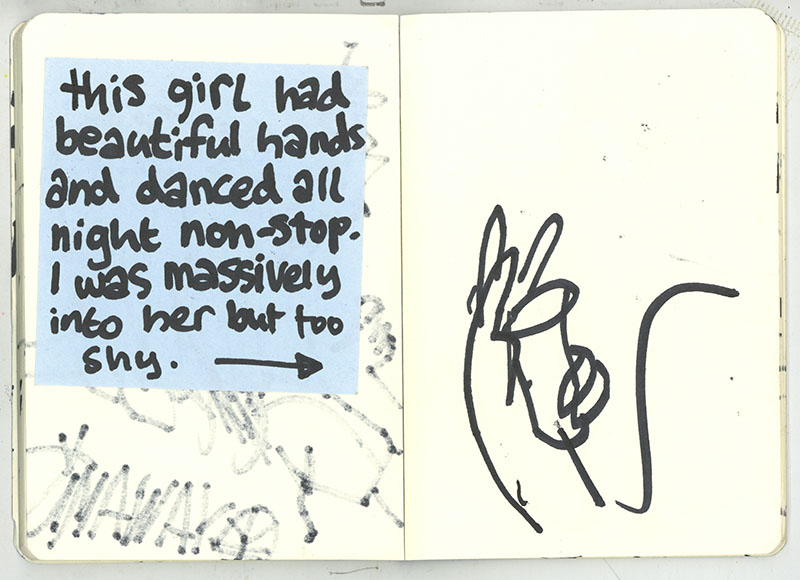 this girl had
beautiful hands
and danced all
night non-stop.
I was massively
into her but too
shy.